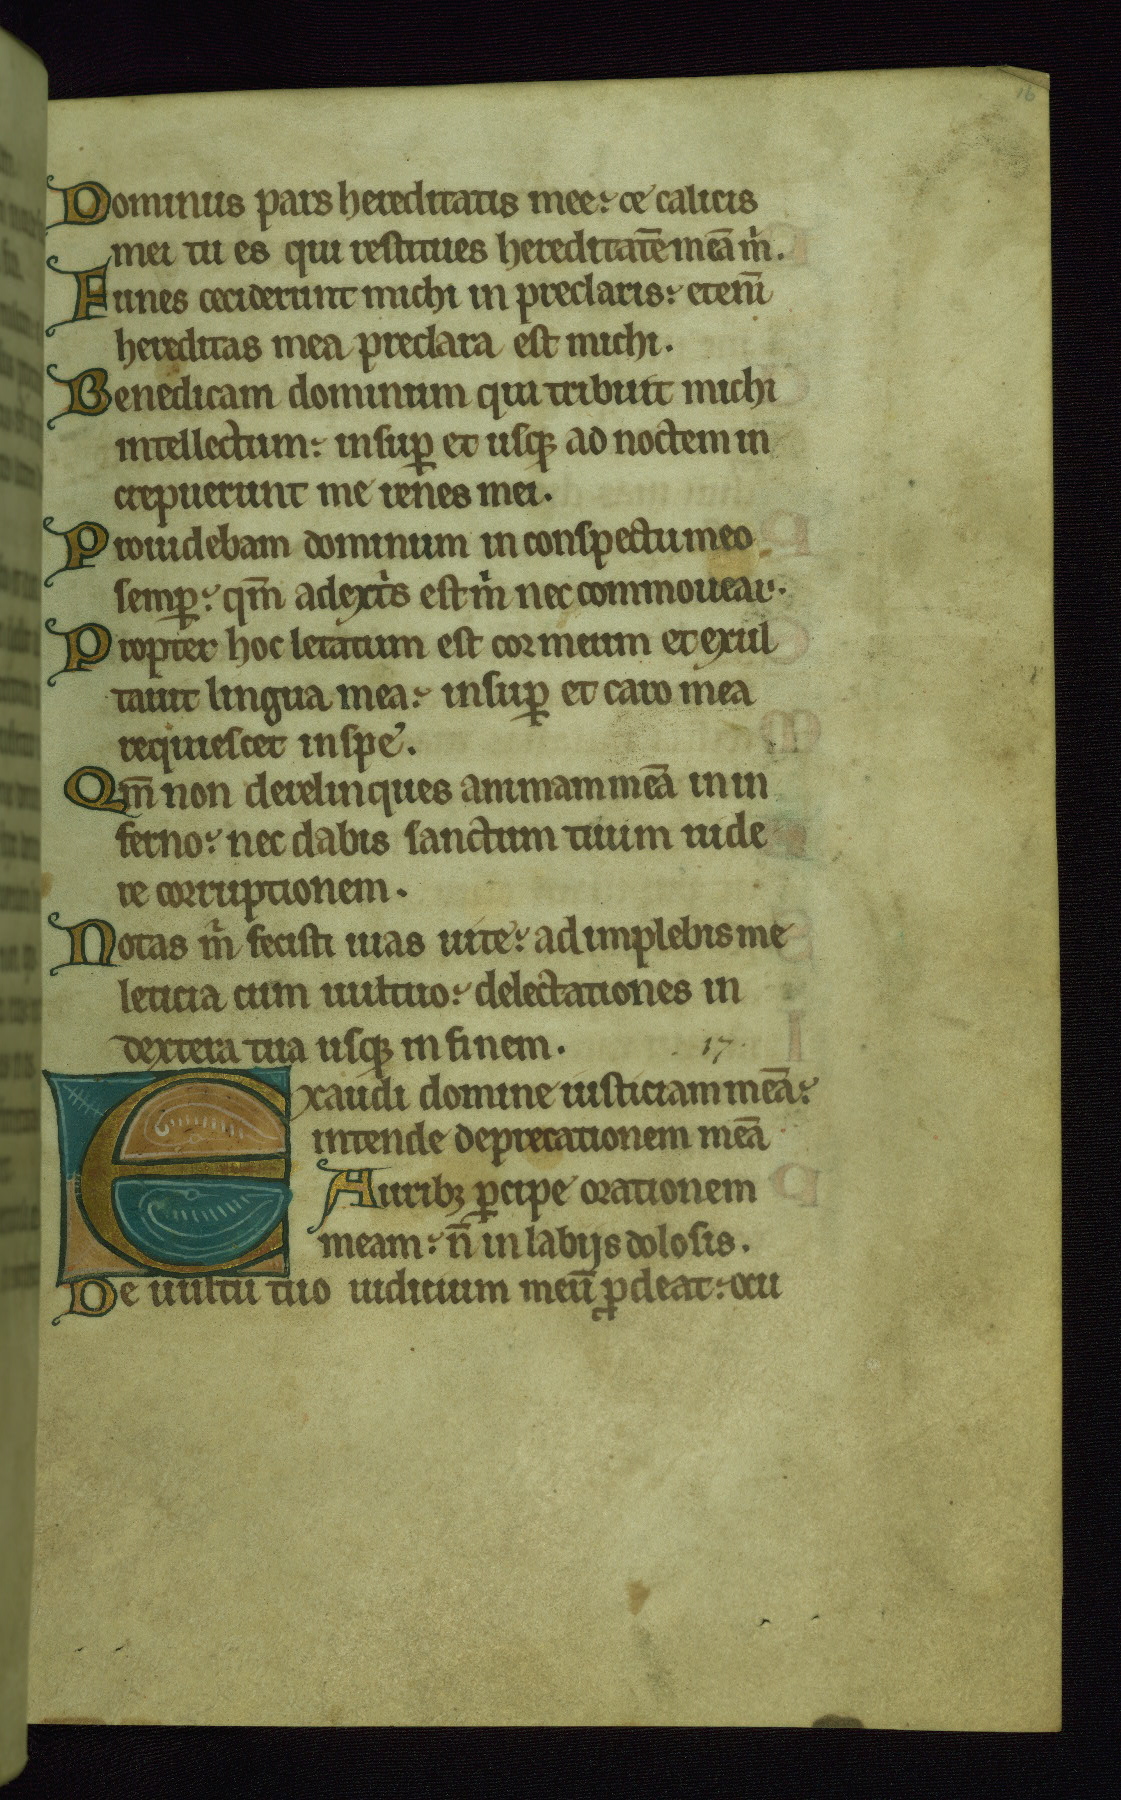 16
Dominus pars hereditatis mee: et calicis
mei tu es qui restitues hereditatē meā m̄.
Funes ceciderunt michi in preclaris: eteni̅
hereditas mea preclara est michi.
Benedicam dominum qui tribuit michi
intellectum: insuꝑ et usqꝫ ad noctem in
crepuerunt me renes mei.
Prouidebam dominum in conspectu meo
semꝑ: qm̄ adextˈs est m̄ nec commouear.
Propter hoc letatum est cor meum et exul
tauit lingua mea: insuꝑ et caro mea
requiescet in spe.
Qm̄ non derelinques animam meā in in
ferno: nec dabis sanctum tuum uide
re corruptionem.
Notas m̄ fecisti uias uite: adimplebis me
leticia cum uultuo: delectationes in
dextera tua usqꝫ in finem. 17
Exaudi domine iusticiam meā:
intende deprecationem meā
Auribꝫ ꝑcipe orationem
meam: n̄ in labijs dolosis.
De uultu tuo iudicium meū ꝓdeat: ocu